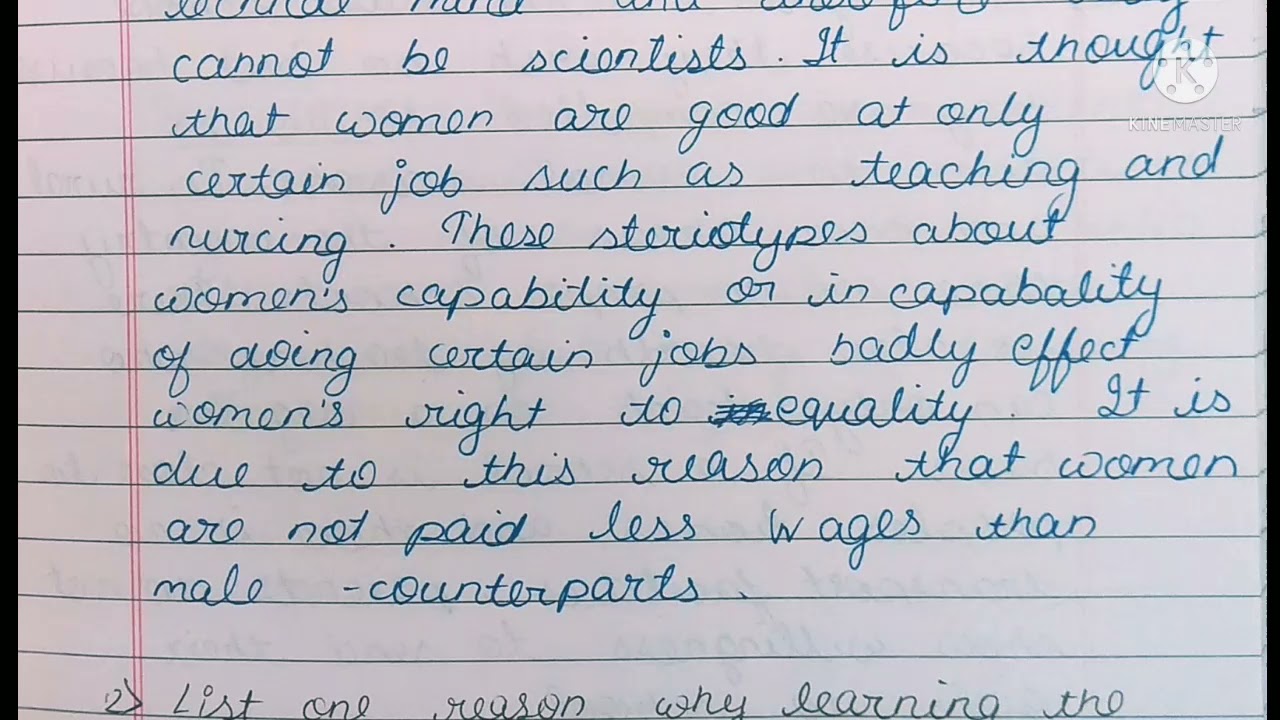 technical mind and therefore they
cannot be scientists. It is thought
that women are good at only
certain job such as teaching and
nurcing. These steriotypes about
women's capability or in capabality
of doing certain jobs badly effect
women's right to equality It is
due to this reason that women
are not paid less wages than
male -counterparts.
2) List one reason why learning the
K
KINEMASTER